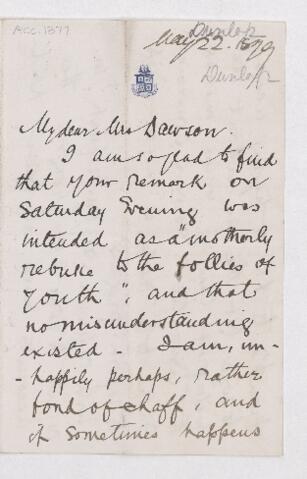 ACC. 1377
Dunlop
May 22. 1879
Dunlop
My dear Mrs Dawson.
I am so glad to find
that your remark on
Saturday Evening was
intended as a "motherly
rebuke to the follies of
youth", and that
no misunderstanding
existed - I am, un-
-happily perhaps, rather
fond of chaff, and
it sometimes happens